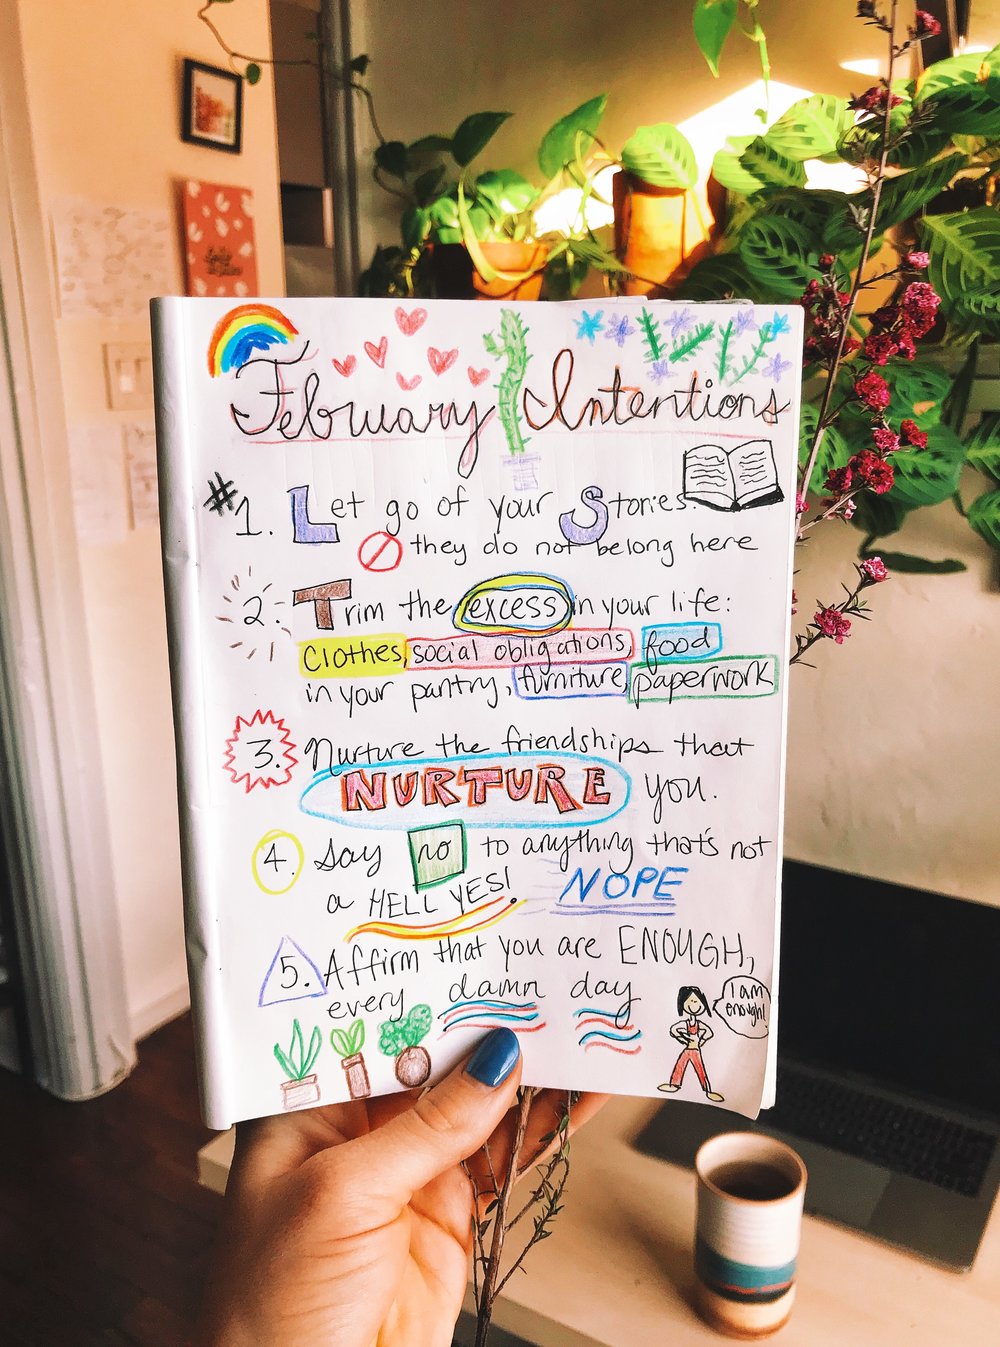 February Intentions
#1. Let go of your Stories.
they do not belong here
2. Trim the excess in your life:
clothes, social obligations, food
in your pantry, furniture, paperwork
3. Nurture the friendships that
NURTURE you.
4. Say no to anything that's not
a HELL YES! NOPE
5. Affirm that you are ENOUGH,
every damn day
I am
enough!